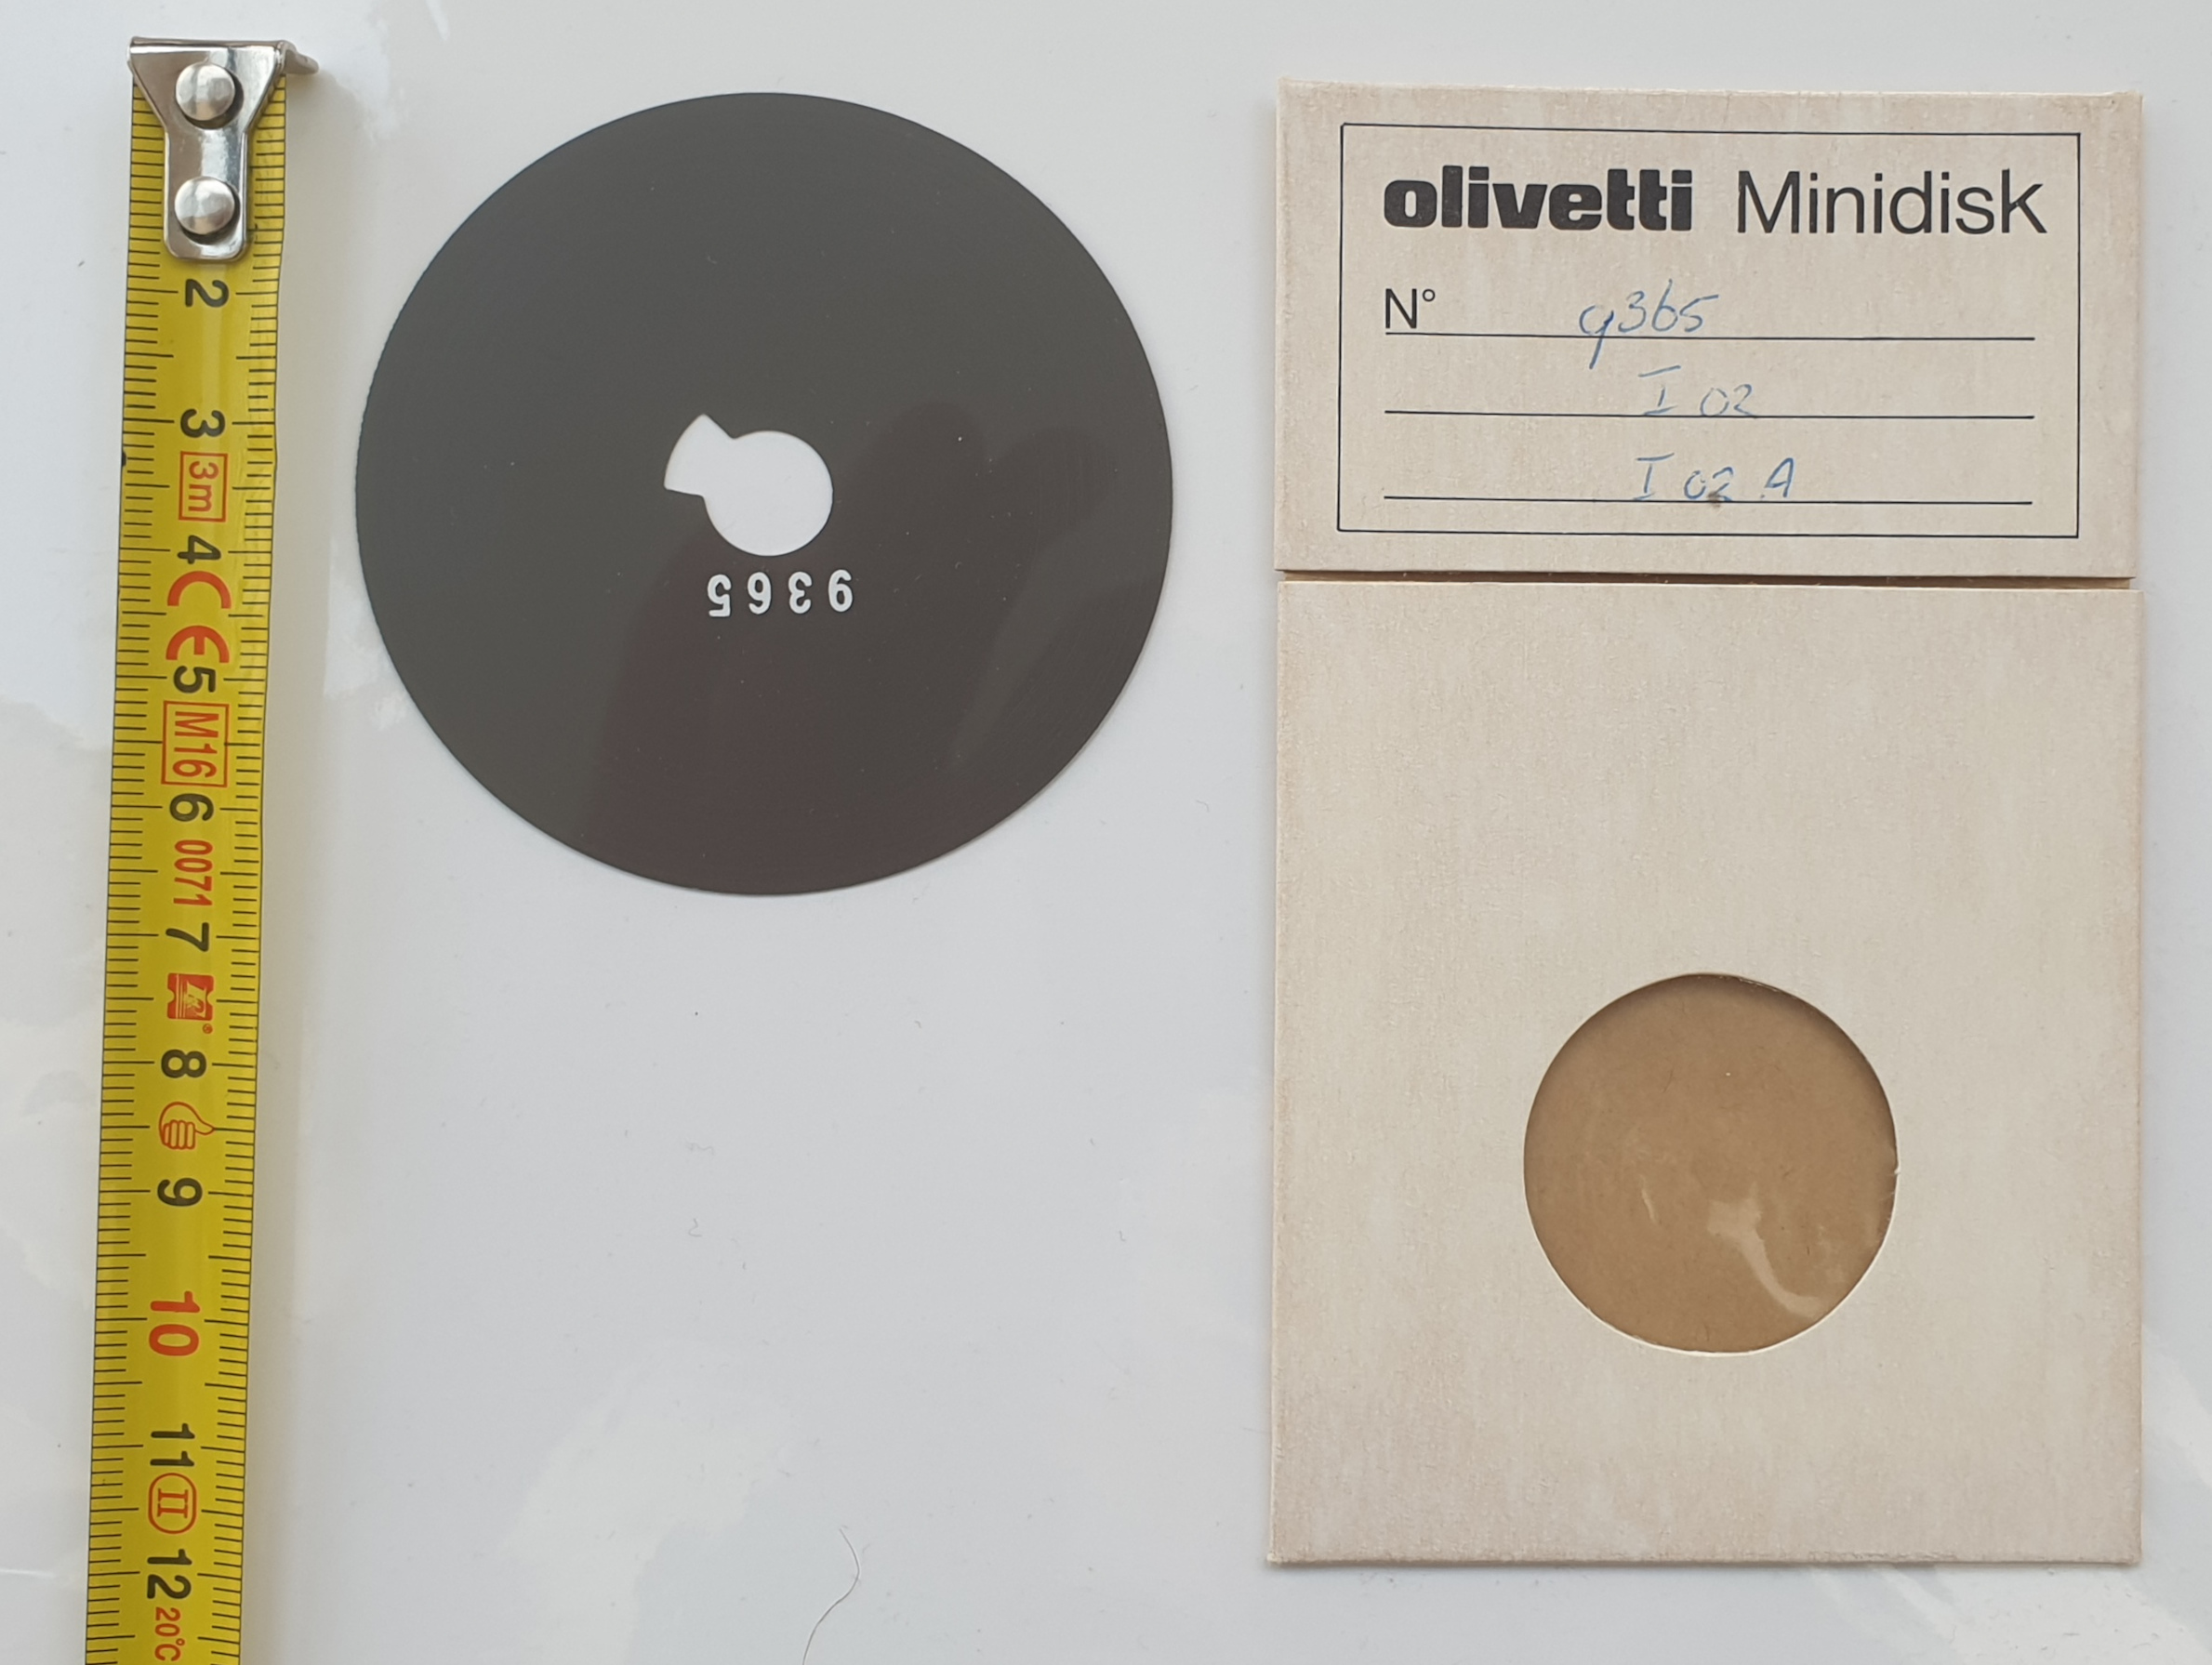 2
3
3m
4
CE
5
M16
6
0071
7
8
9
10
11
II
12
20°C
9365
olivetti Minidisk
N° 9365
I 02
I 02 A